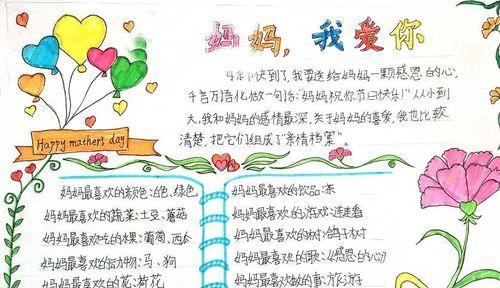 妈妈，我爱你
母亲节快到了，我要送给妈妈一颗感恩的心，
千言万语化做一句话：“妈妈祝你节日快乐！”从小到
大，我和妈妈的感情最深，关于妈妈的喜爱，我也比较
清楚，把它们组成了“亲情档案”。
Happy mathers day
妈妈最喜欢的颜色：白色、绿色
妈妈最喜欢的蔬菜：土豆、蘑菇
妈妈最喜欢吃的水果：葡萄、西
妈妈最喜欢的动物：马、狗
妈妈最喜欢的花：荷花
妈妈最喜欢的饮品：茶
妈妈最喜欢的游戏：连连看
妈妈最喜欢的树：鸽子树
妈妈最喜欢的歌：《感恩的心》
妈妈最喜欢做的事：旅游